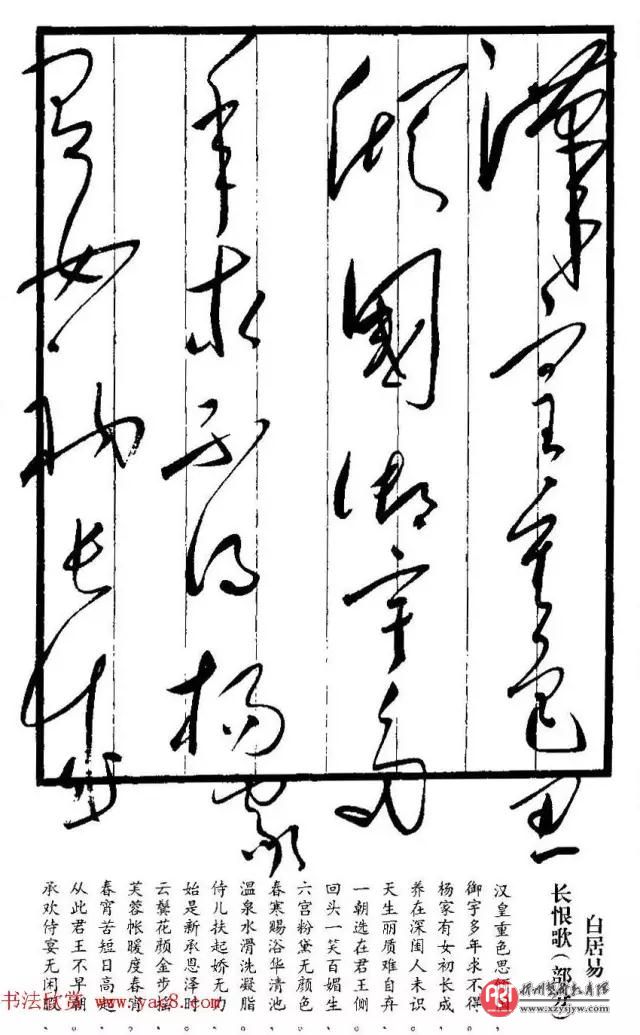 漢皇重色思
傾國御宇多
年求不得楊家
有女初長成
白居易
长恨歌(部分)
汉皇重色思
御宇多年求不得
杨家有女初长成
养在深闺人未识
天生丽质难自弃
一朝选在君王侧
回头一笑百媚生
六宫粉黛无颜色
春寒赐浴华清池
温泉水滑洗凝脂
侍儿扶起娇无力
始是新承恩泽时
云鬓花颜金步摇
芙蓉帐暖度春宵
春宵苦短日高起
从此君王不早朝
承欢侍宴无闲暇
书法欣赏 www.yac8.com
www.xzysjyw.com